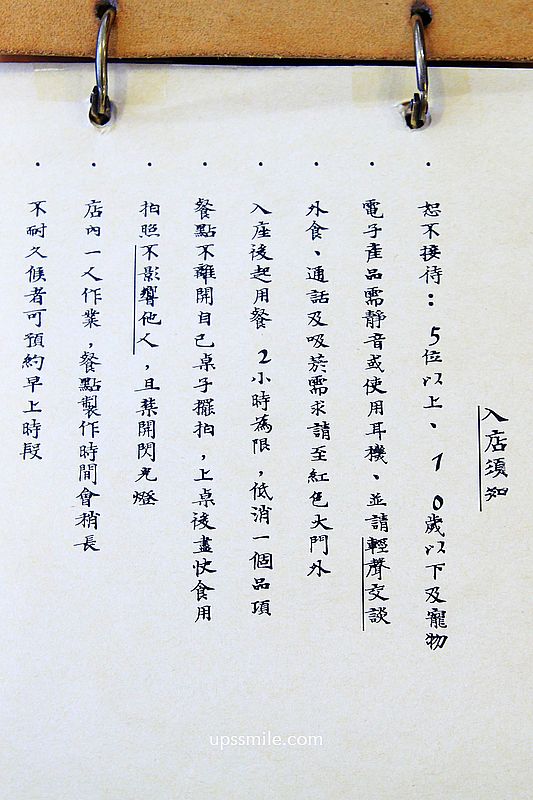 入店須知
・恕不接待：5位以上、10歲以下及寵物
・電子產品需靜音或使用耳機、並請輕聲交談
・外食、通話及吸菸需求請至紅色大門外
・入座後起用餐 2小時為限，低消一個品項
・餐點不離開自己桌子擺拍，上桌後盡快食用
・拍照不影響他人，且禁開閃光燈
・店內一人作業，餐點製作時間會稍長
・不耐久候者可預約早上時段
upssmile.com